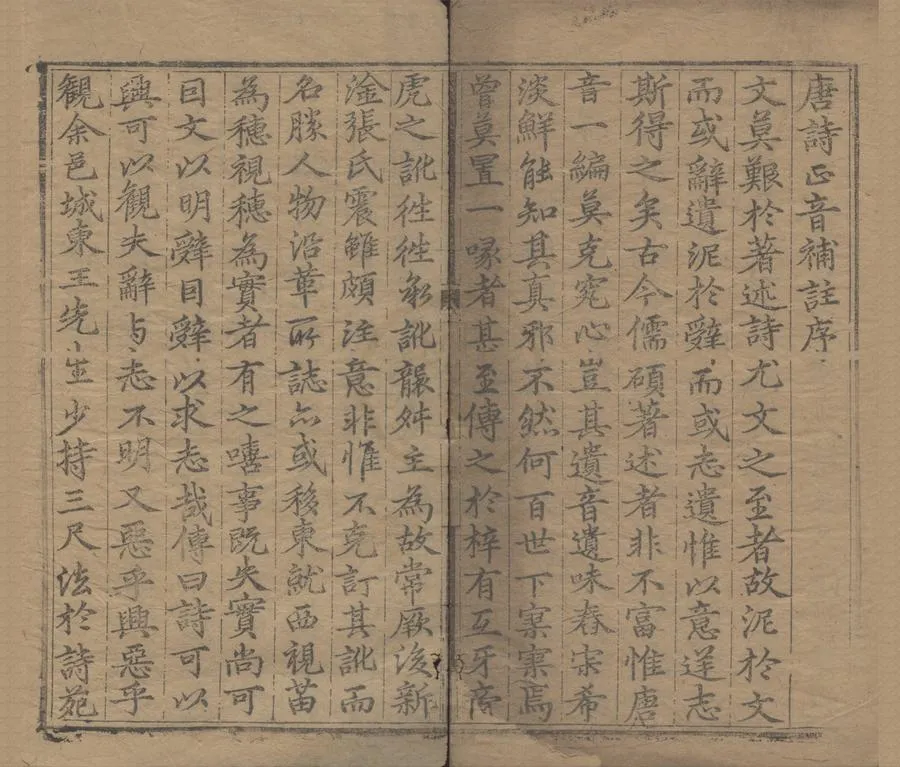 唐詩正音補註序
文莫艱於著述詩尤文之至者故泥於文
而或辭遺泥於辭而或志遺惟以意逆志
斯得之矣古今儒碩著述者非不富惟唐
音一編莫克究心豈其遺音遺味舂容希
淡鮮能知其真邪不然何百世下寥寥焉
曾莫置一喙者甚至傳之於梓有互牙帝
虎之訛徃徃承訛襲舛主為故常厥後新
淦張氏震雖頗注意非惟不克訂其訛而
名勝人物沿革所誌亦或移東就西視苗
為穗視穗為實者有之嘻事既失實尚可
囙文以明辭囙辭以求志哉傳曰詩可以
興可以觀夫辭与志不明又惡乎興惡乎
觀余邑城東王先生少持三尺法於詩苑